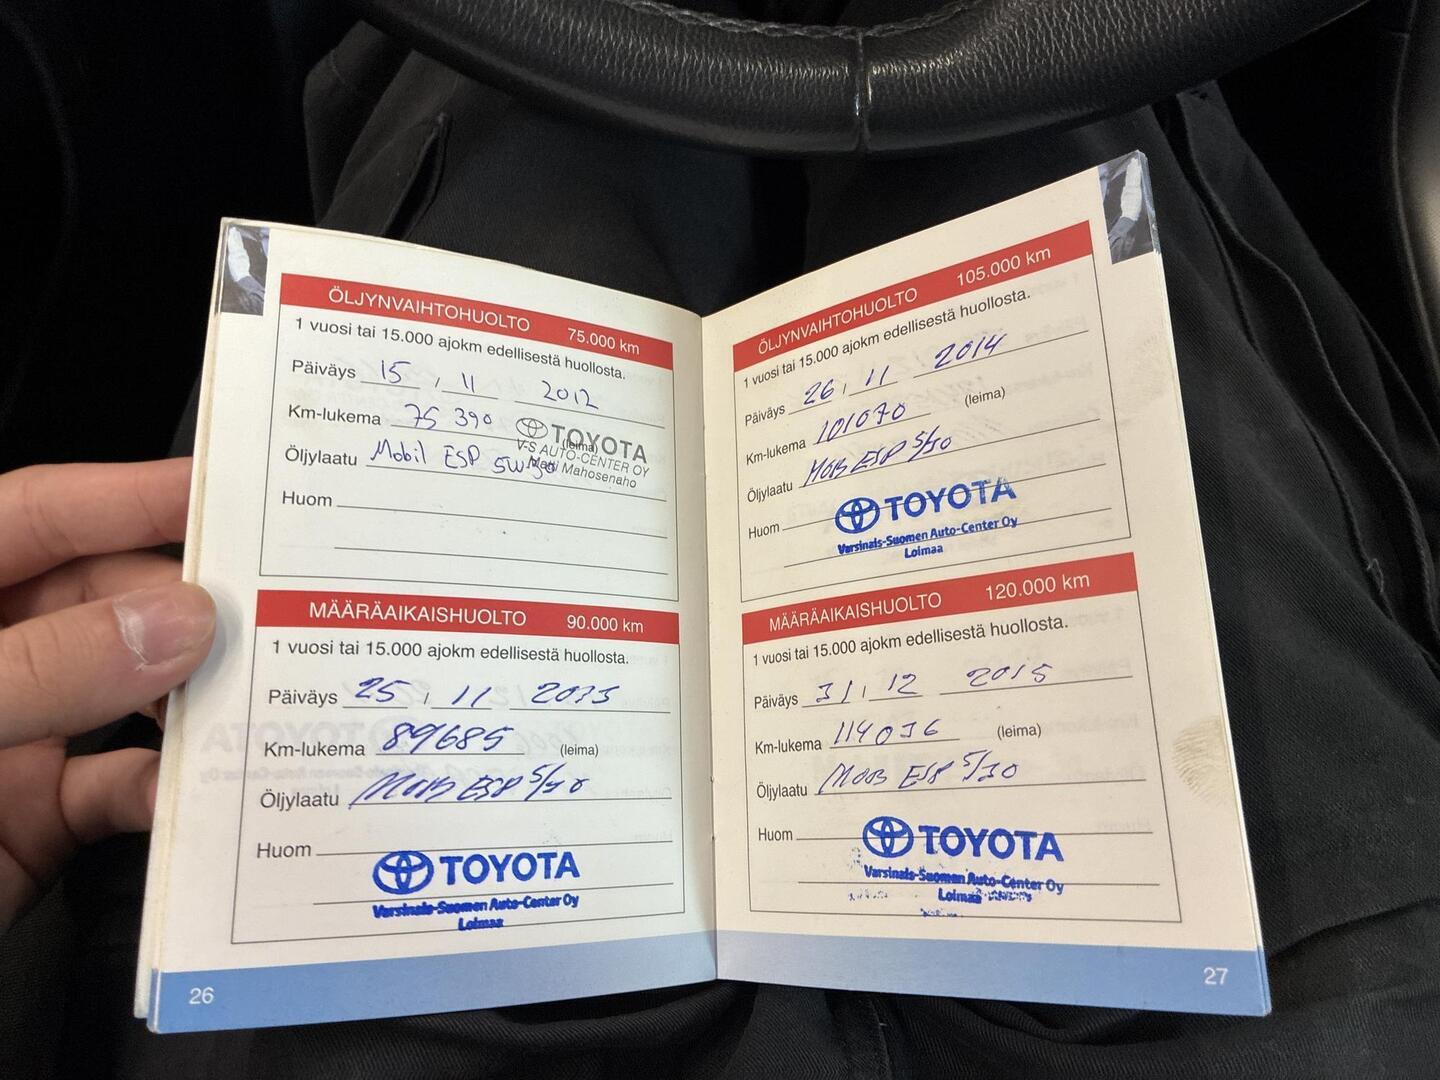 ÖLJYNVAIHTOHUOLTO 75.000 km
1 vuosi tai 15.000 ajokm edellisestä huollosta.
Päiväys 15 / 11 2012
Km-lukema 75 390 (leima)
Öljylaatu Mobil ESP 5W30
TOYOTA
V-S AUTO-CENTER OY
Matti Mahosenaho
Huom
MÄÄRÄAIKAISHUOLTO 90.000 km
1 vuosi tai 15.000 ajokm edellisestä huollosta.
Päiväys 25 / 11 2013
Km-lukema 89685 (leima)
Öljylaatu MOB ESP 5/30
Huom
TOYOTA
Varsinais-Suomen Auto-Center Oy
Loimaa
26
ÖLJYNVAIHTOHUOLTO 105.000 km
1 vuosi tai 15.000 ajokm edellisestä huollosta.
Päiväys 26 / 11 2014
Km-lukema 101070 (leima)
Öljylaatu MOB ESP 5/30
Huom
TOYOTA
Varsinais-Suomen Auto-Center Oy
Loimaa
MÄÄRÄAIKAISHUOLTO 120.000 km
1 vuosi tai 15.000 ajokm edellisestä huollosta.
Päiväys 31 / 12 2015
Km-lukema 114036 (leima)
Öljylaatu MOB ESP 5/30
Huom
TOYOTA
Varsinais-Suomen Auto-Center Oy
Loimaa
27